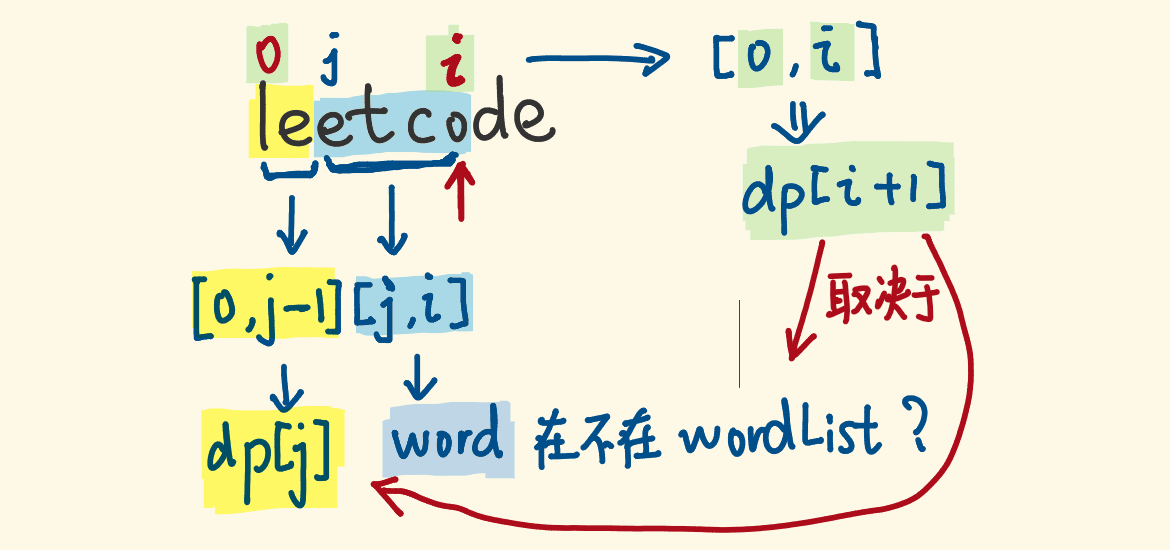 0 j i
[0, i]
leetcode
dp[i+1]
取决于
[0,j-1] [j,i]
dp[j] word 在不在 wordList ?